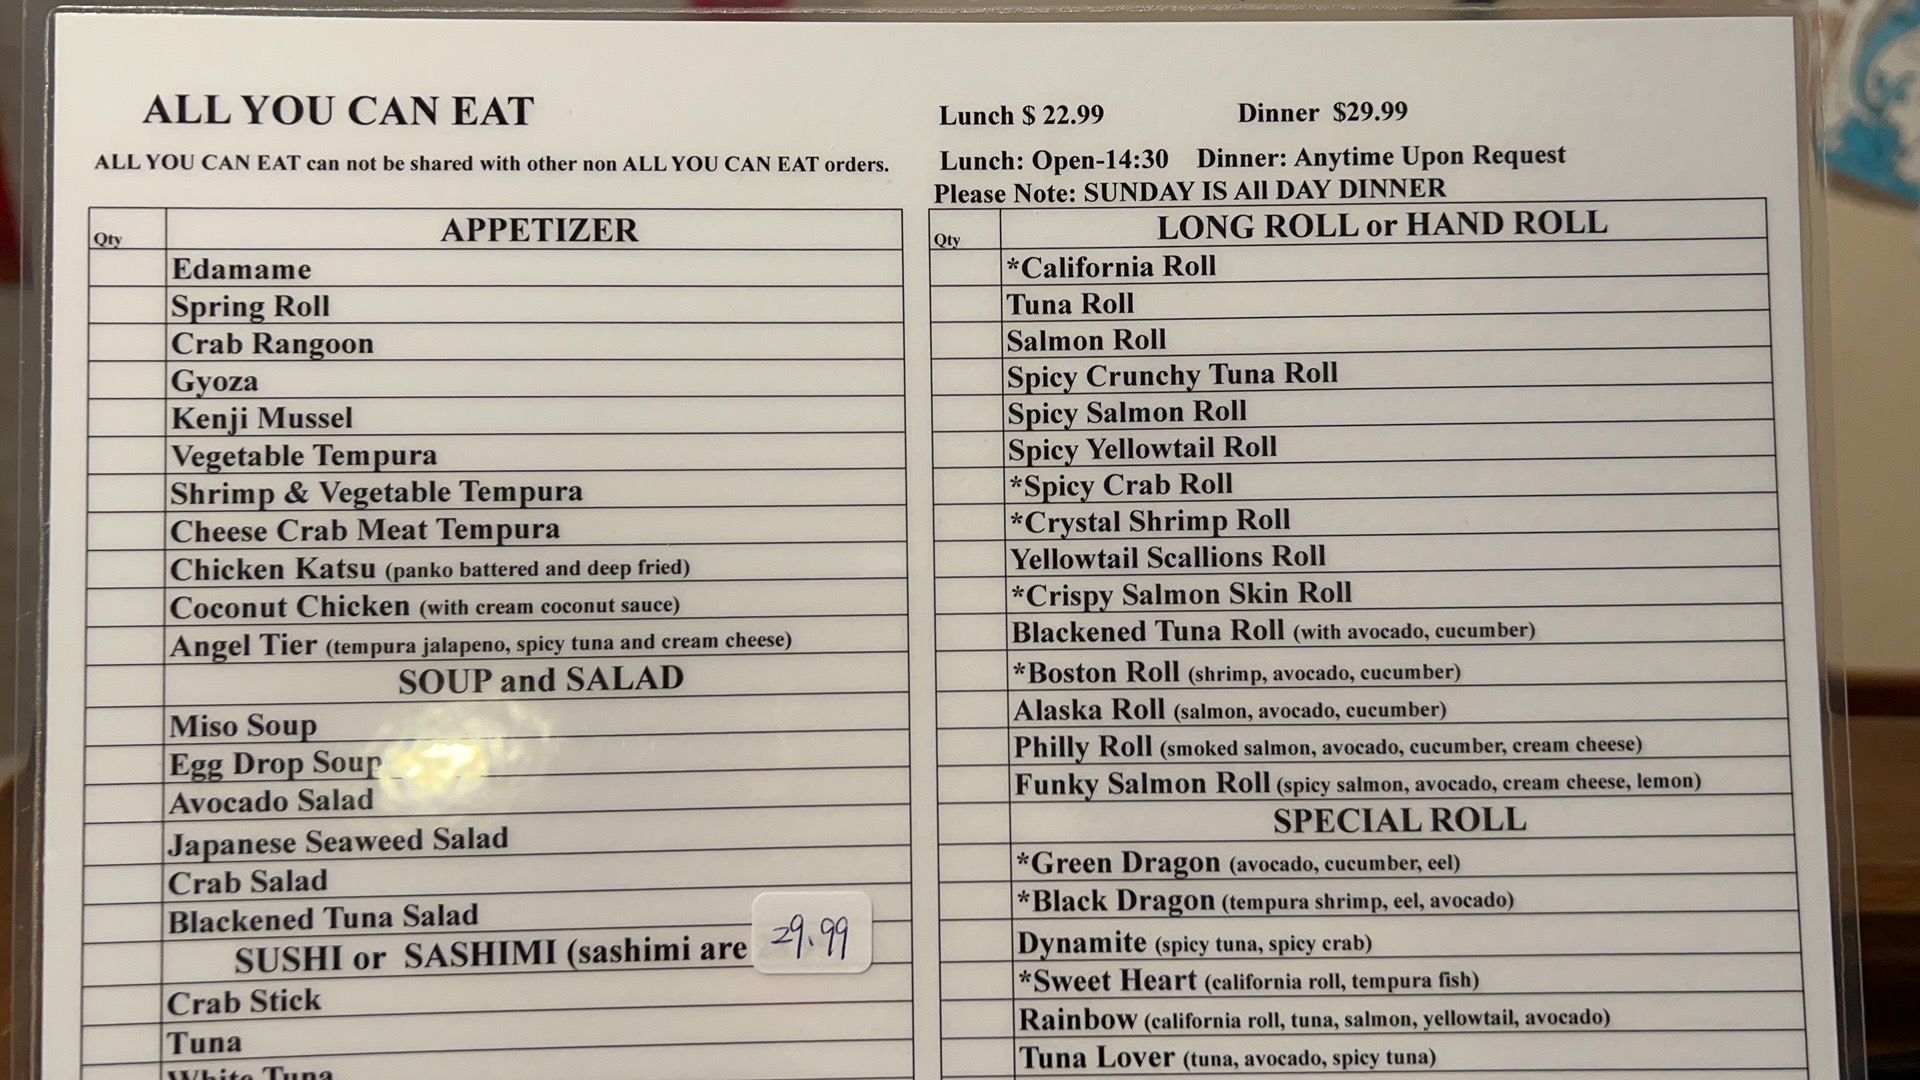 ALL YOU CAN EAT
ALL YOU CAN EAT can not be shared with other non ALL YOU CAN EAT orders.
Lunch $ 22.99 Dinner $29.99
Lunch: Open-14:30 Dinner: Anytime Upon Request
Please Note: SUNDAY IS All DAY DINNER
Qty APPETIZER
Edamame
Spring Roll
Crab Rangoon
Gyoza
Kenji Mussel
Vegetable Tempura
Shrimp & Vegetable Tempura
Cheese Crab Meat Tempura
Chicken Katsu (panko battered and deep fried)
Coconut Chicken (with cream coconut sauce)
Angel Tier (tempura jalapeno, spicy tuna and cream cheese)
SOUP and SALAD
Miso Soup
Egg Drop Soup
Avocado Salad
Japanese Seaweed Salad
Crab Salad
Blackened Tuna Salad
SUSHI or SASHIMI (sashimi are 29.99
Crab Stick
Tuna
White Tuna
Qty LONG ROLL or HAND ROLL
*California Roll
Tuna Roll
Salmon Roll
Spicy Crunchy Tuna Roll
Spicy Salmon Roll
Spicy Yellowtail Roll
*Spicy Crab Roll
*Crystal Shrimp Roll
Yellowtail Scallions Roll
*Crispy Salmon Skin Roll
Blackened Tuna Roll (with avocado, cucumber)
*Boston Roll (shrimp, avocado, cucumber)
Alaska Roll (salmon, avocado, cucumber)
Philly Roll (smoked salmon, avocado, cucumber, cream cheese)
Funky Salmon Roll (spicy salmon, avocado, cream cheese, lemon)
SPECIAL ROLL
*Green Dragon (avocado, cucumber, eel)
*Black Dragon (tempura shrimp, eel, avocado)
Dynamite (spicy tuna, spicy crab)
*Sweet Heart (california roll, tempura fish)
Rainbow (california roll, tuna, salmon, yellowtail, avocado)
Tuna Lover (tuna, avocado, spicy tuna)